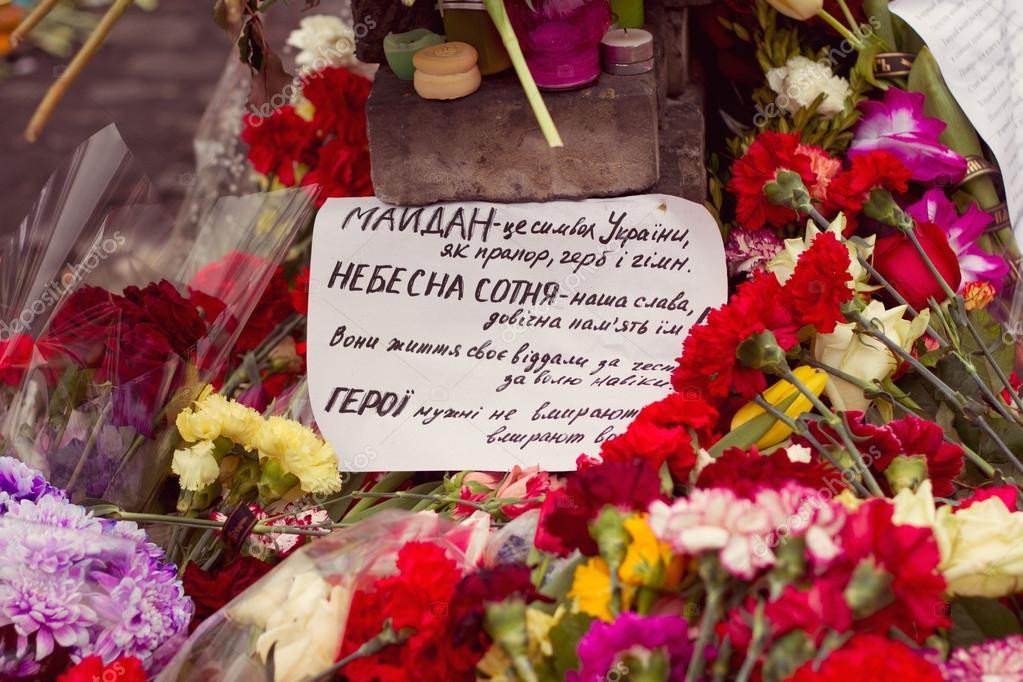 МАЙДАН-це символ України,
як прапор, герб і гімн.
НЕБЕСНА СОТНЯ-наша слава,
довічна пам'ять їм
Вони життя своє віддали за чест
за волю навіки.
ГЕРОЇ мужні не вмирают
вмирают во